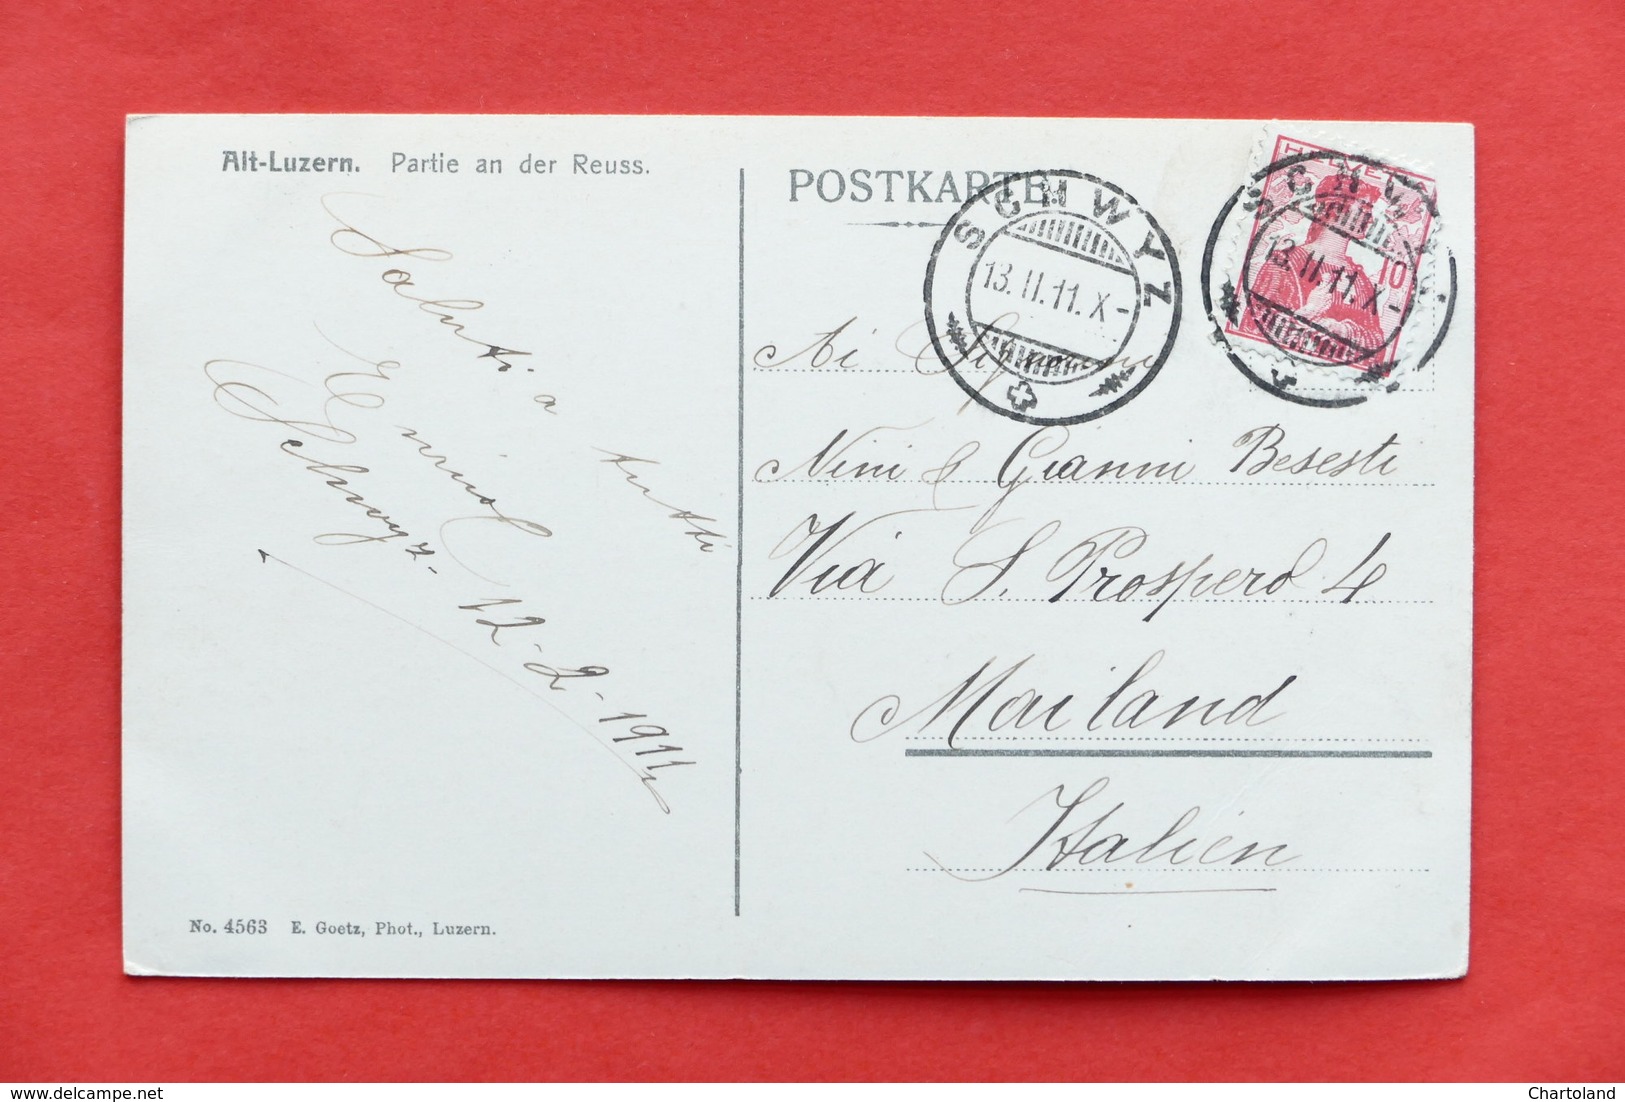 Alt-Luzern. Partie an der Reuss.
POSTKARTE
SCHWYZ
13. II. 11. X-
HELVETIA
10
SCHWYZ
13. II. 11. X-
Saluti a tutti
Schwyz - 12-2-1911
Ai Signorini
Nini & Gianni Besesti
Via S. Prospero 4
Mailand
Italien
No. 4563 E. Goetz, Phot., Luzern.
Chartoland